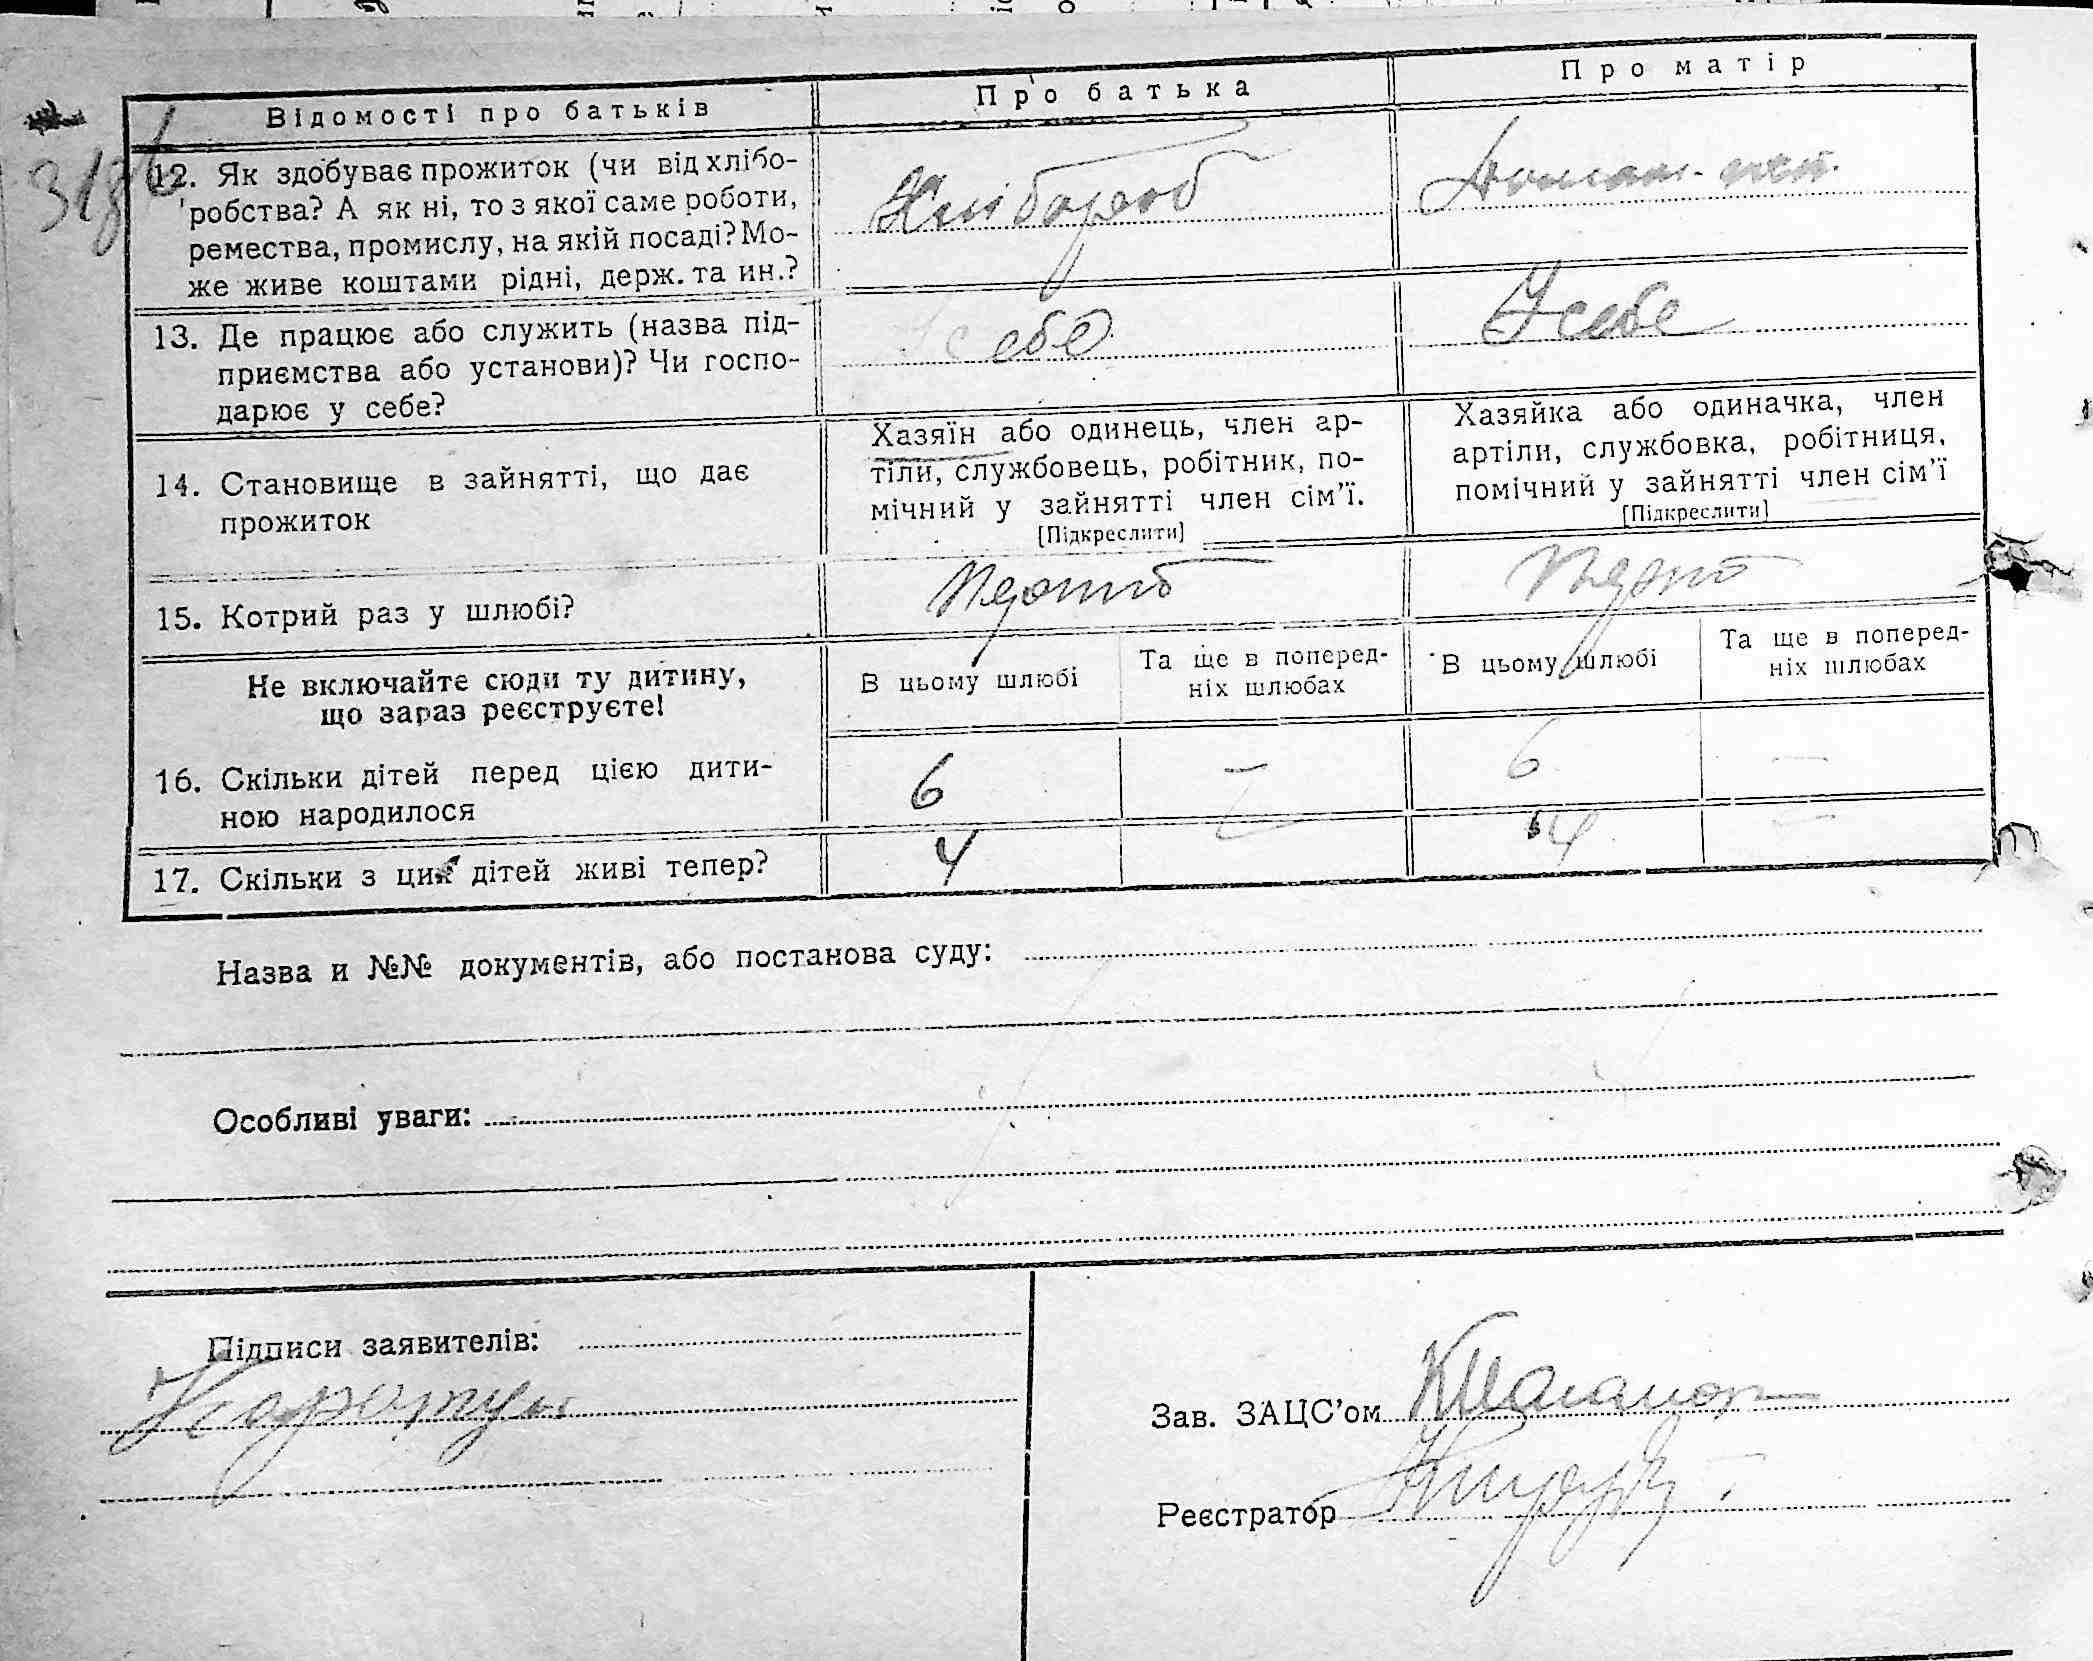 Відомості про батьків
Про батька
Про матір
12. Як здобуває прожиток (чи від хлібо-
робства? А як ні, то з якої саме роботи,
ремества, промислу, на якій посаді? Мо-
же живе коштами рідні, держ. та ин.?
Хлібороб
Домаш.
13. Де працює або служить (назва під-
приємства або установи)? Чи госпо-
дарює у себе?
У себе
У себе
14. Становище в зайнятті, що дає
прожиток
Хазяїн або одинець, член ар-
тіли, службовець, робітник, по-
мічний у зайнятті член сім'ї.
[Підкреслити]
Хазяйка або одиначка, член
артіли, службовка, робітниця,
помічний у зайнятті член сім'ї
[Підкреслити]
15. Котрий раз у шлюбі?
Не включайте сюди ту дитину,
що зараз реєструєте!
В цьому шлюбі
Та ще в поперед-
ніх шлюбах
В цьому шлюбі
Та ще в поперед-
ніх шлюбах
16. Скільки дітей перед цією дити-
ною народилося
6 — 6 —
17. Скільки з цих дітей живі тепер?
4 — 4 —
Назва и №№ документів, або постанова суду:
Особливі уваги:
Підписи заявителів:
Зав. ЗАЦС'ом
Реєстратор